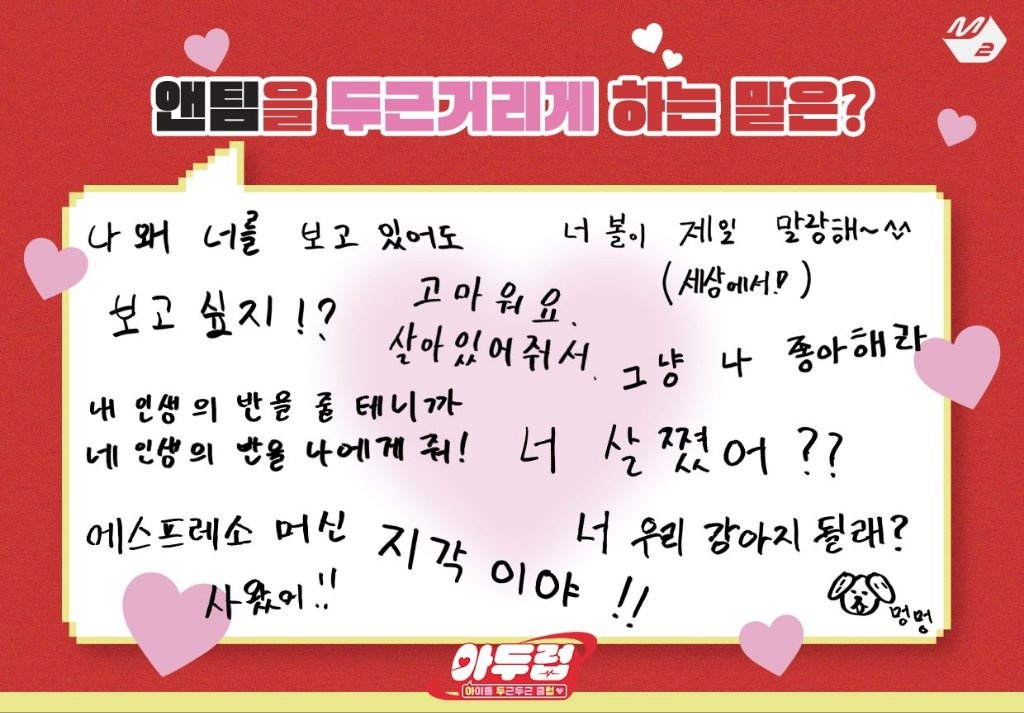 M2
앤팀을 두근거리게 하는 말은?
나 왜 너를 보고 있어도
보고 싶지!?
너 볼이 제일 말랑해~^^
(세상에서!)
고마워요.
살아있어줘서.
그냥 나 좋아해라
내 인생의 반을 줄 테니까
네 인생의 반을 나에게 줘!
너 살 쪘어??
에스프레소 머신
사왔어!!
지각이야!!
너 우리 강아지 될래?
멍멍
아두럽
아이돌 두근두근 클럽